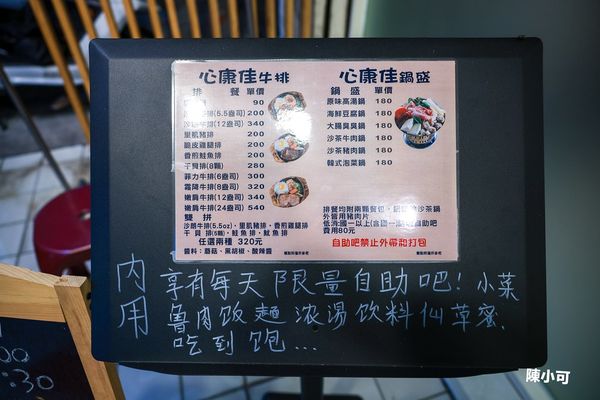 心康佳牛排
排 餐 單價
90
(5.5盎司) 200
排(12盎司) 340
里肌豬排 200
脆皮雞腿排 200
香煎鮭魚排 200
干貝排(8顆) 280
菲力牛排(6盎司) 300
霜降牛排(12盎司) 340
嫩肩牛排(12盎司) 340
嫩肩牛排(24盎司) 540
雙 拼
沙朗牛排(5.5oz)、里肌豬排、香煎雞腿排
干貝排(5顆)、鮭魚排、魷魚排
任選兩種 320元
醬料：蘑菇、黑胡椒、酸辣醬
心康佳鍋盛
鍋 盛 單價
原味高湯鍋 180
海鮮豆腐鍋 180
大腸臭臭鍋 180
沙茶牛肉鍋 180
沙茶豬肉鍋 180
韓式泡菜鍋 180
排餐均附兩顆餐包
沙茶鍋
外皆用豬肉片
低消國一以上(含國一
自助吧
費用80元
自助吧禁止外帶和打包
內用
享有每天限量自助吧！小菜
魯肉飯麵濃湯飲料仙草蜜、
吃到飽...
00
:30
陳小可